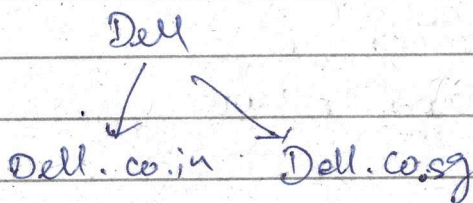 Dell
Dell.co.in Dell.co.sg